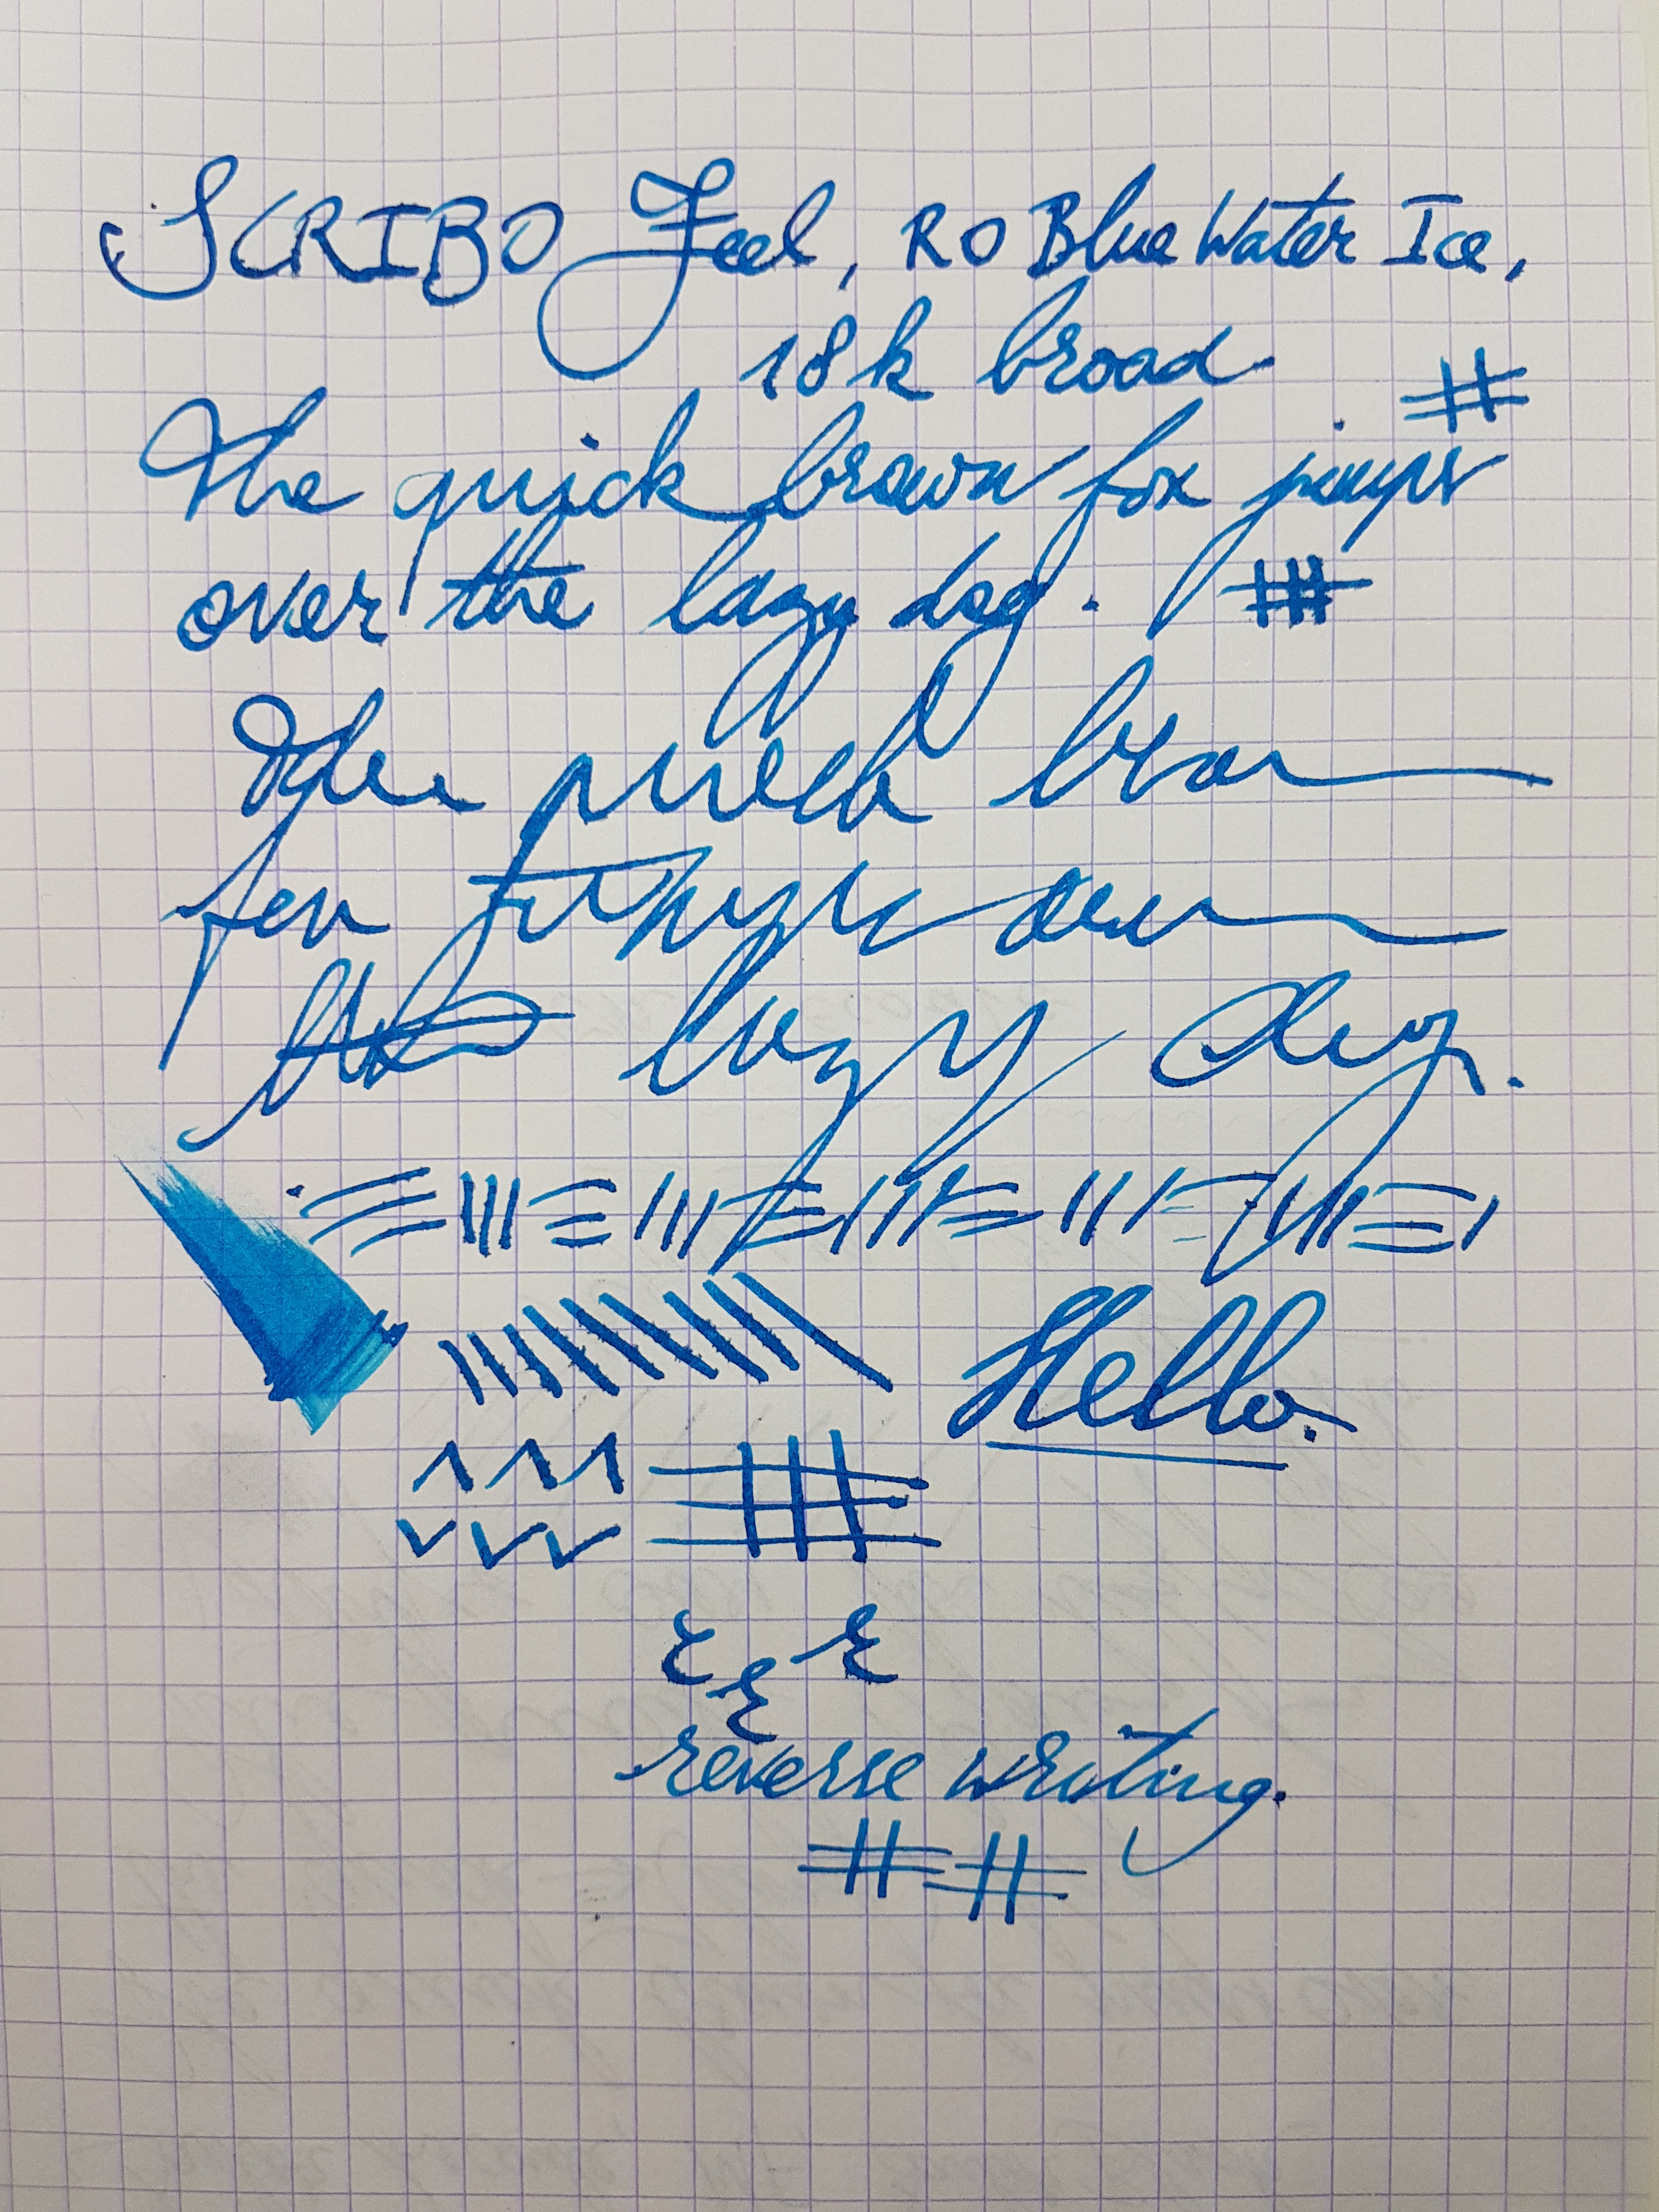 SCRIBO Feel, RO Blue Water Ice,
18k broad
The quick brown fox jumps
over the lazy dog.
The quick brown
fox jumps over
the lazy dog.
Hello.
reverse writing.